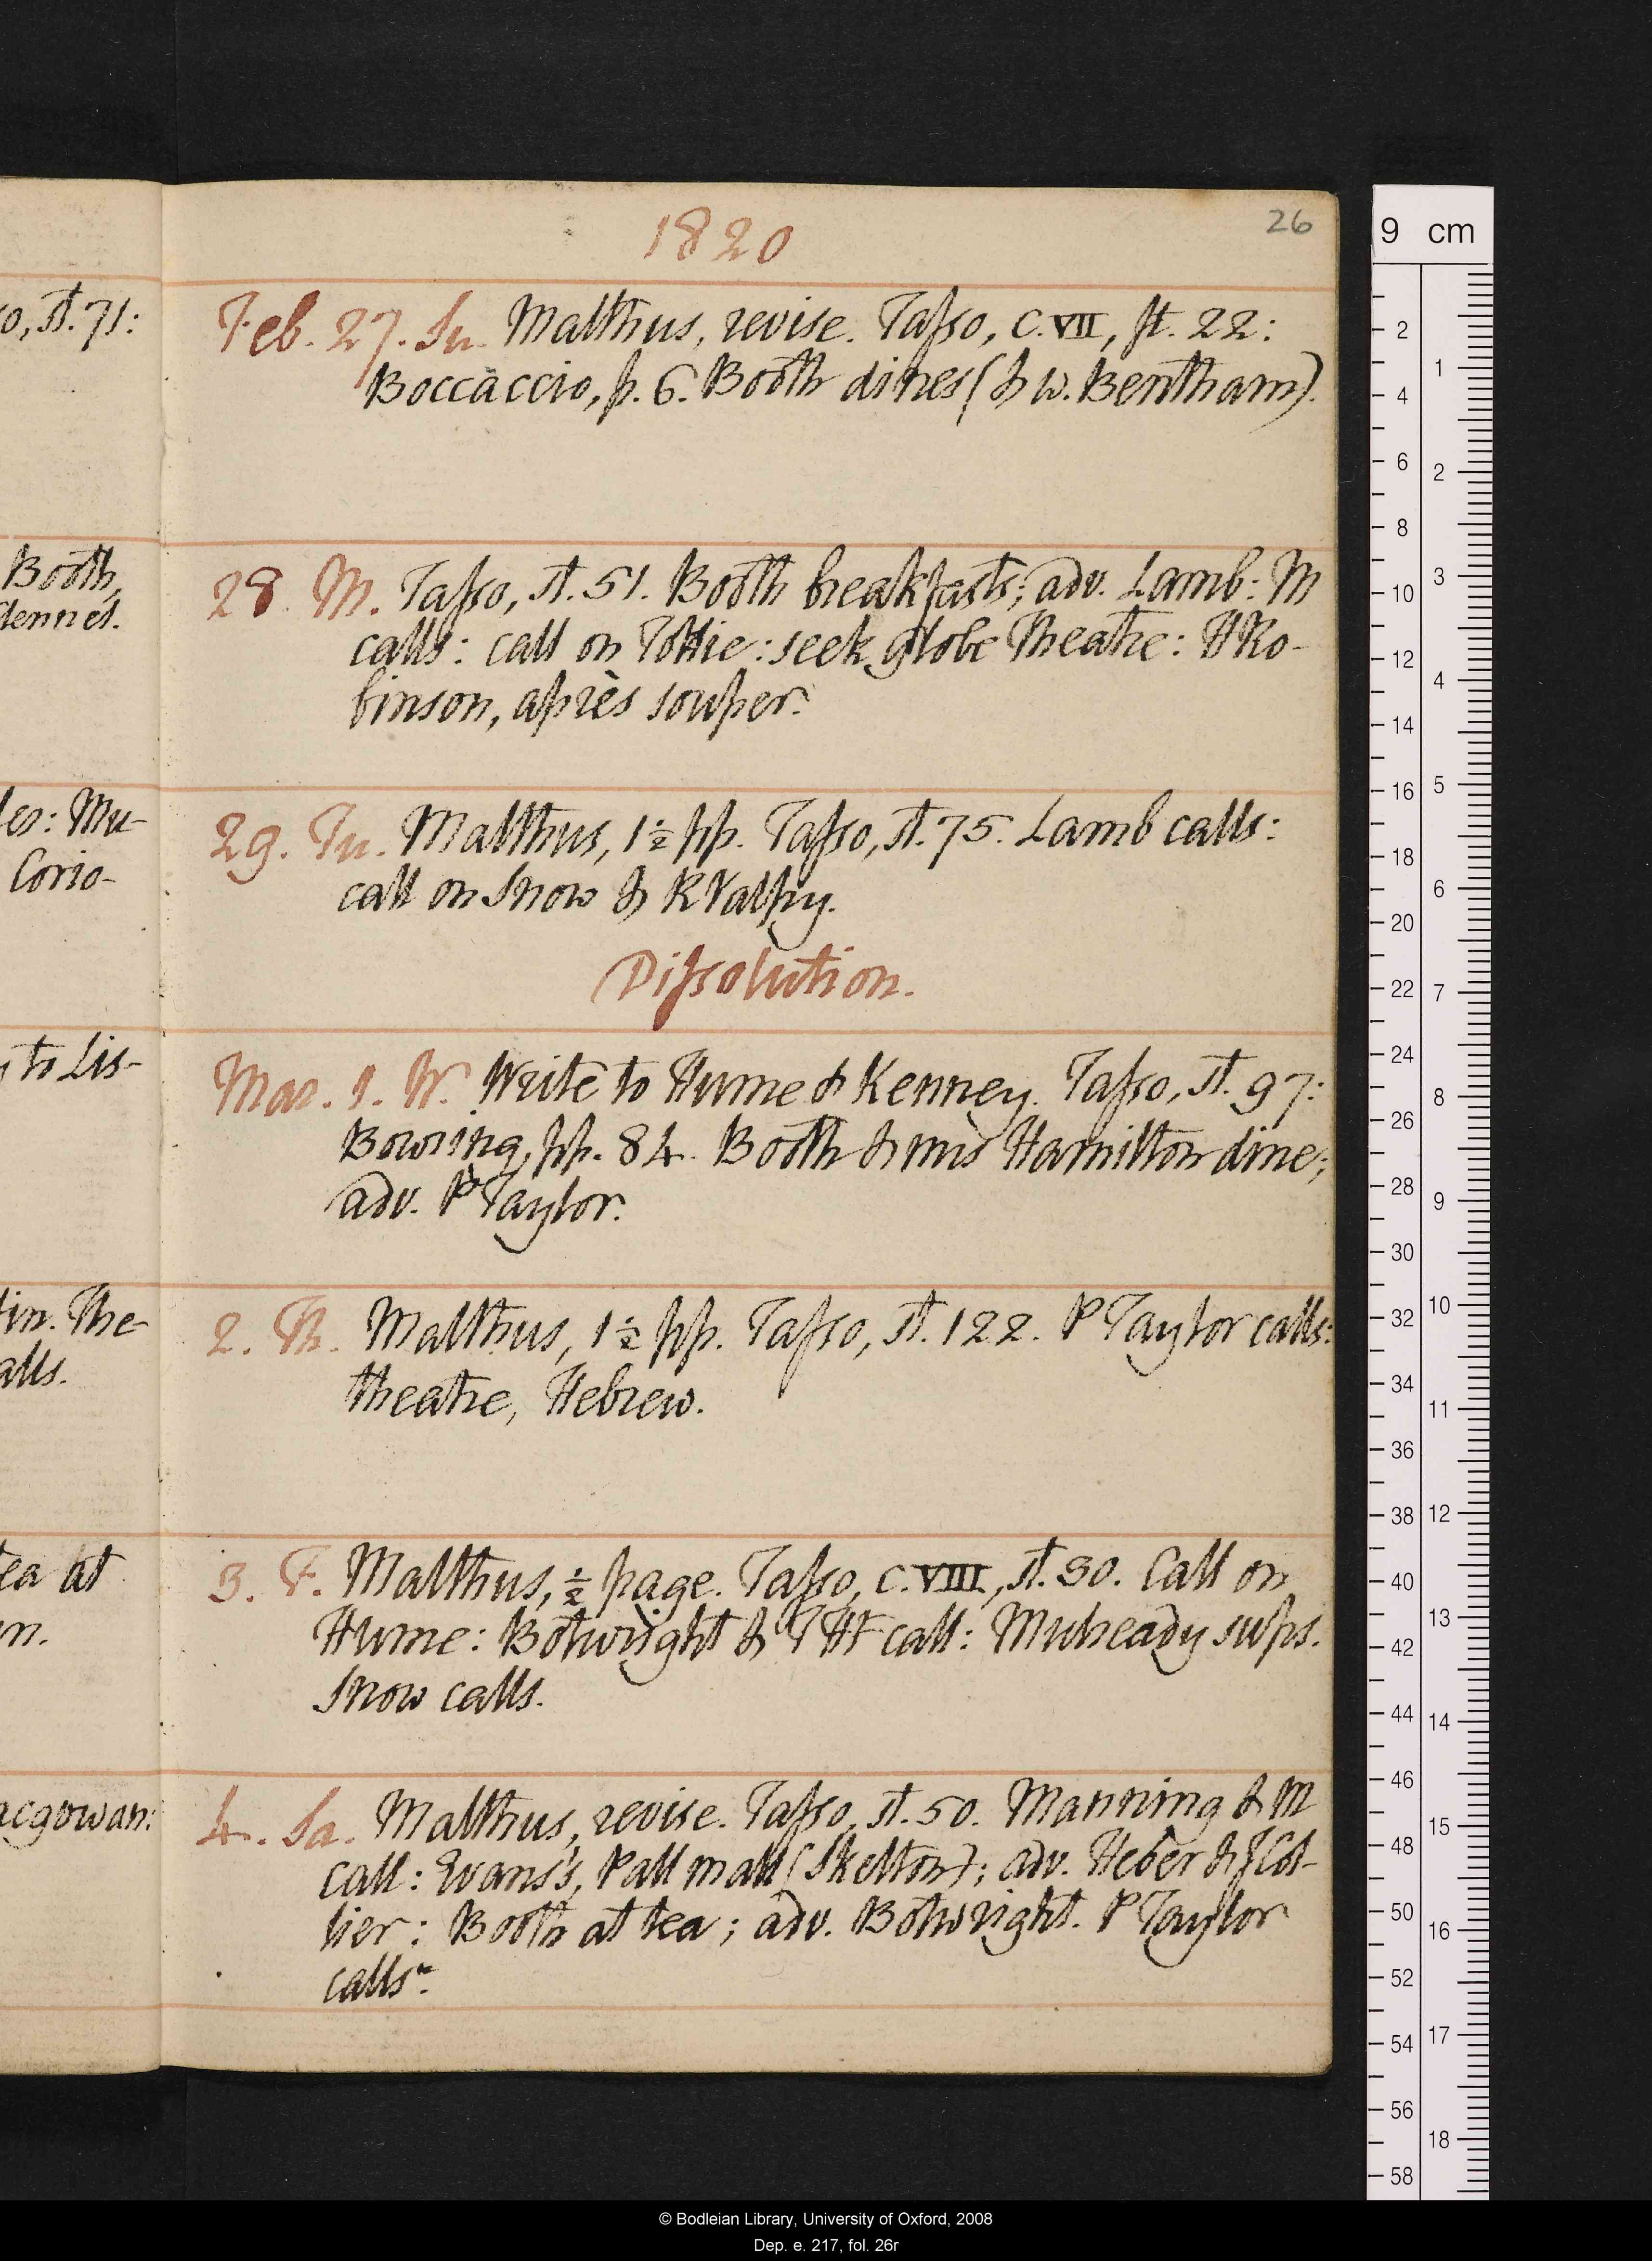 1820
26
Feb. 27. Su. Malthus, revise. Tasso, C. VII, st. 22:
Boccaccio, p. 6. Booth dines (& w. Bentham).
28. M. Tasso, st. 51. Booth breakfasts; adv. Lamb: M
calls: call on Tottie: seek globe Theatre: H Ro-
binson, après souper.
29. Tu. Malthus, 1½ pp. Tasso, st. 75. Lamb calls:
call on Snow & R Valpy.
Dissolution.
Mar. 1. W. Write to Hume & Kenney. Tasso, st. 97:
Bowring, pp. 84. Booth & mis Hamilton dine;
adv. P Taylor.
2. Th. Malthus, 1½ pp. Tasso, st. 122. P Taylor calls:
theatre, Hebrew.
3. F. Malthus, ½ page. Tasso, C. VIII, st. 30. Call on
Hume: Botwright & T H call: Mulready sups.
Snow calls.
4. Sa. Malthus, revise. Tasso, st. 50. Manning & M
call: Evans's, Pall mall (Skelton); adv. Heber & J Col-
lier: Booth at tea; adv. Botwright. P Taylor
calls.
o, st. 71:
Booth,
les: Mu-
Corio-
to Lis-
tin. The-
alls.
tea at
n.
acgowan:
9 cm
2
4
6
8
10
12
14
16
18
20
22
24
26
28
30
32
34
36
38
40
42
44
46
48
50
52
54
56
58
1
2
3
4
5
6
7
8
9
10
11
12
13
14
15
16
17
18
© Bodleian Library, University of Oxford, 2008
Dep. e. 217, fol. 26r